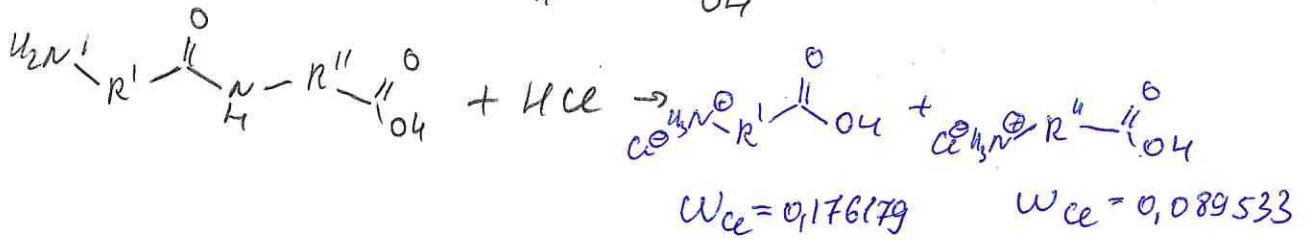 OH
H₂N R' O N H R'' O OH + HCl → Cl⊖ H₃N⊕ R' O OH + Cl⊖ H₃N⊕ R'' O OH
ω_Cl = 0,176179 ω_Cl = 0,089533